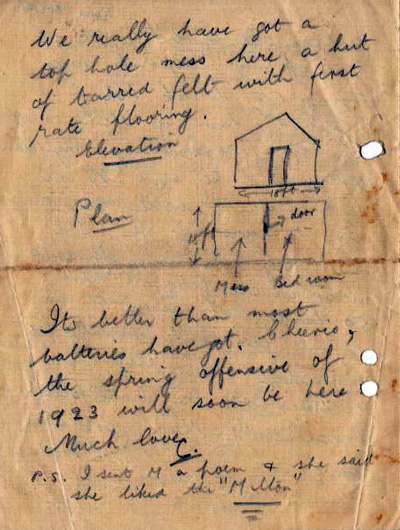 We really have got a
top hole mess here a hut
of tarred felt with first
rate flooring.
Elevation
10ft
Plan
door
ft
Mess Bed room
Its better than most
batteries have got. Cheerio,
the spring offensive of
1923 will soon be here
Much love
P.S. I sent M a poem & she said
she liked the "Milton"